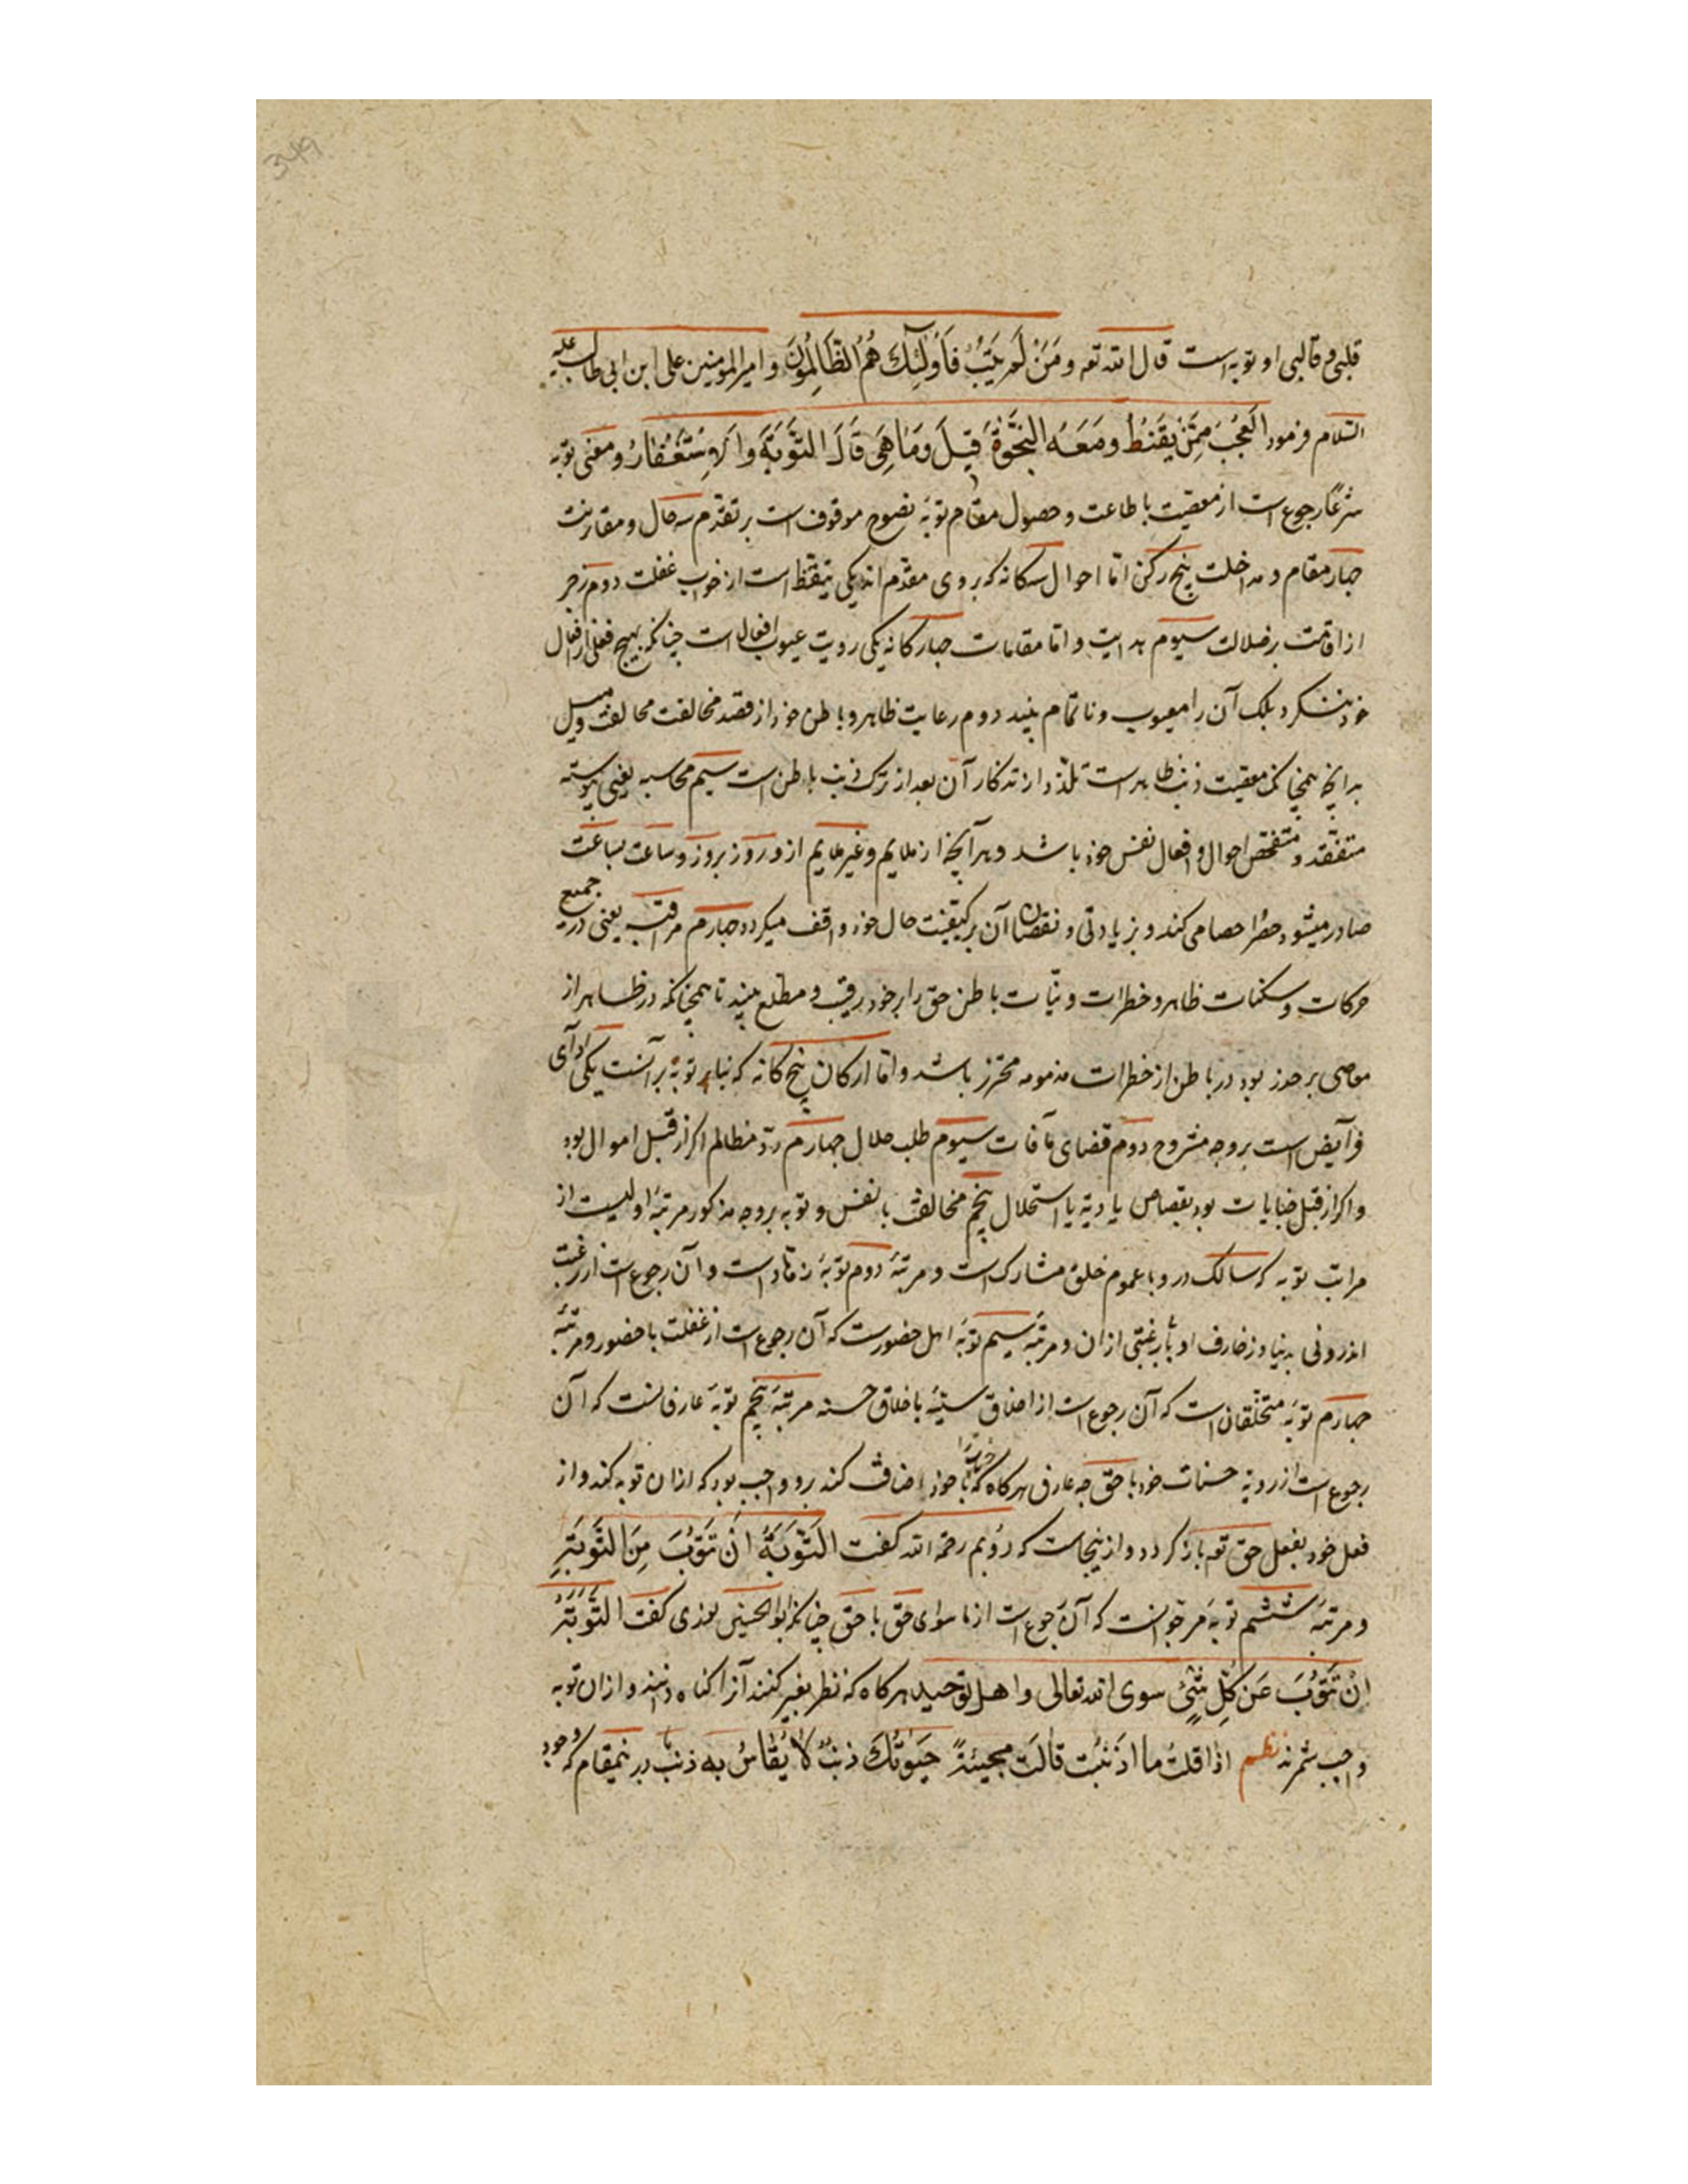 قلبی و قالبی او توبه است قال الله تعه وَمَنْ لَمْ يَتُبْ فَاُولٰئِكَ هُمُ الظَّالِمُونَ و امیرالمومنین علی ابن ابی طالب علیه
السّلام فرمود الْعَجُبَ مِمَّنْ يَقْنَطُ وَمَعَهُ النَّجْوَةُ قِيلَ وَمَا هِيَ قَالَ التَّوْبَةُ وَالاِسْتَغْفَارُ و معنی توبه
شرعًا رجوع است از معصیت با طاعت و حصول مقام توبهٔ نصوح موقوف است بر تقدّم سه حال و مقارنت
چهار مقام و مداخلت پنج رکن امّا احوال سه کانه که بروی مقدّم اند یکی تیقّظ است از خواب غفلت دوم زجر
از اقامت بر ضلالت سیوم هدایت و امّا مقامات چهار کانه یکی رویت عیوب افعال است چنانکه بهیچ فعلی از افعال
خود ننکرد بلک آن را معیوب و ناتمام بیند دوم رعایت ظاهر و باطن خود از قصد مخالفت محالفت و میل
بدانچه همچنانک معصیت ذنب ظاهرست تلذّذ از تذکار آن بعد از ترک ذنب باطن است سیم محاسبه یعنی پیوسته
متفقّد و متفحّص احوال و افعال نفس خود باشد و هر آنچه از ملایم و غیر ملایم از و روز بروز و ساعت بساعت
صادر میشود حصر و احصا می کند و بزیادتی و نقصان آن بر کیفیّت حال خود واقف میکردد چهارم مراقبه یعنی در جمیع
حرکات و سکنات ظاهر و خطرات و نیّات باطن حق را بر خود رقیب و مطلع بیند تا همچنانکه در ظاهر از
معاصی بر حذر بود در باطن از خطرات مذمومه محترز باشد و امّا ارکان پنج کانه که بنای توبه بر آنست یکی ادآی
فرآیض است بر وجه مشروح دوم قضای مافات سیوم طلب حلال چهارم ردّ مظالم اکر از قبل اموال بود
و اکر از قبل جنایات بود بقصاص یا دیّة یا استحلال پنجم مخالفت با نفس و توبه بر وجه مذکور مرتبهٔ اولیست از
مراتب توبه که سالک درو با عموم خلق مشارک است و مرتبهٔ دوم توبهٔ زهّاد است و آن رجوع است از رغبت
اندرونی بدنیا و زخارف او با بیرغبتی ازان و مرتبهٔ سیم توبهٔ اهل حضورست که آن رجوع است از غفلت با حضور و مرتبهٔ
چهارم توبهٔ متخلّقان است که آن رجوع است از اخلاق سیّئه با خلاق حسنه مرتبهٔ پنجم توبهٔ عارفانست که آن
رجوع است از رویة حسنات خود با حق چه عارف هرکاه که حسنات را با خود اضافت کند برو واجب بود که ازان توبه کند و از
فعل خود بفعل حق تعه بازکردد و ازینجاست که رُوَیم رحمه الله کفت التَّوْبَةُ اَنْ تَتُوبَ مِنَ التَّوْبَةِ
و مرتبهٔ ششم توبهٔ موحّدانست که آن رجوع است از ماسوای حق با حق چنانکه ابوالحسین نوری کفت التَّوْبَةُ
اِنْ تَتُوبَ عَنْ كُلِّ شَيْءٍ سوی الله تعالی و اهل توحید هرکاه که نظر بغیر کنند آنرا کناه دانند و ازان توبه
واجب شمرند نظم اذا قلتُ ما اذْنَبْتُ قالَتْ مجیبَةً حَيٰوتُكَ ذَنْبٌ لَا يُقَاسُ بِهِ ذنب در ینمقام که وجود